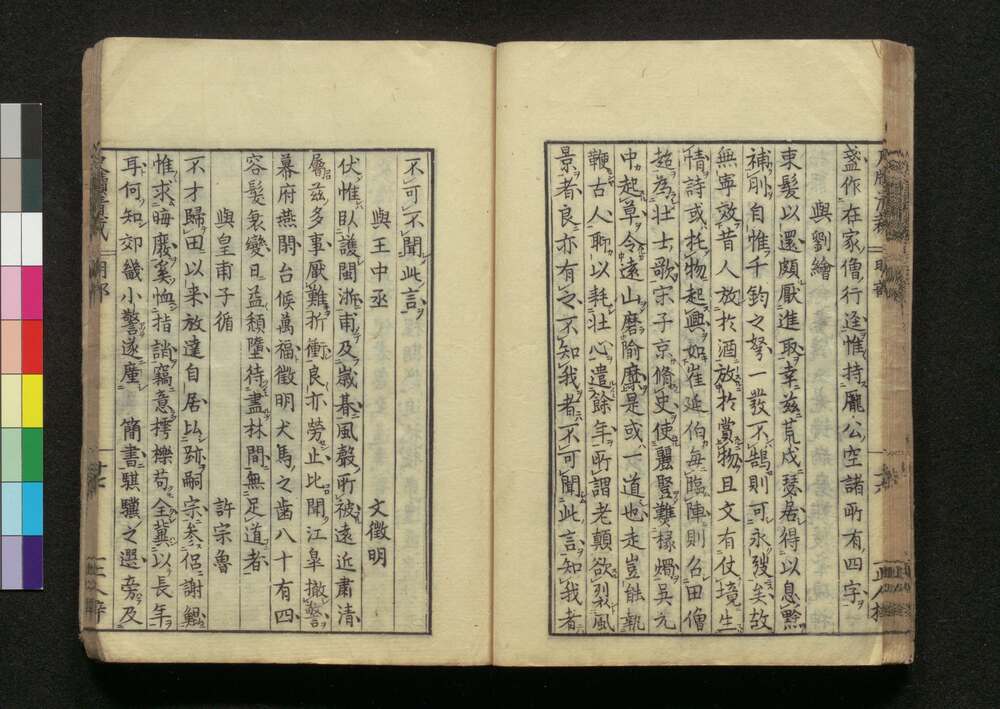 盡作在家僧行逕惟持龐公空諸所有四字
與劉繪
束髮以還頗厭進取幸茲荒戍瑟居得以息黥
補刖自惟千鈞之弩一發不鵠則可永弢矣故
無寧效昔人放於酒放於賞物且文有仗境生
情詩或托物起興如崔延伯每臨陣則召田僧
超為壯士歌宋子京脩史使麗豎㸐椽燭吳元
中起草令遠山磨隃糜是或一道也走豈能執
鞭古人聊以耗壯心遣餘年所謂老顛欲裂風
景者良亦有之不知我者不可聞此言知我者
不可不聞此言
與王中丞　文徵明
伏惟臥護閩浙甫及歲朞風聲所被遠近肅清
屬茲多事厭難折衝良亦勞止比聞江皐撤警
幕府燕閒台候萬福徵明犬馬之齒八十有四
容髮衰變日益頹墮待盡林間無足道者
與皇甫子循　許宗魯
不才歸田以来放達自居比跡嗣宗参侶謝鯤
惟求晦廢奚恤指誚竊意樗櫟苟全冀以長年
耳何知郊畿小警遂塵簡書騏驥之選旁及